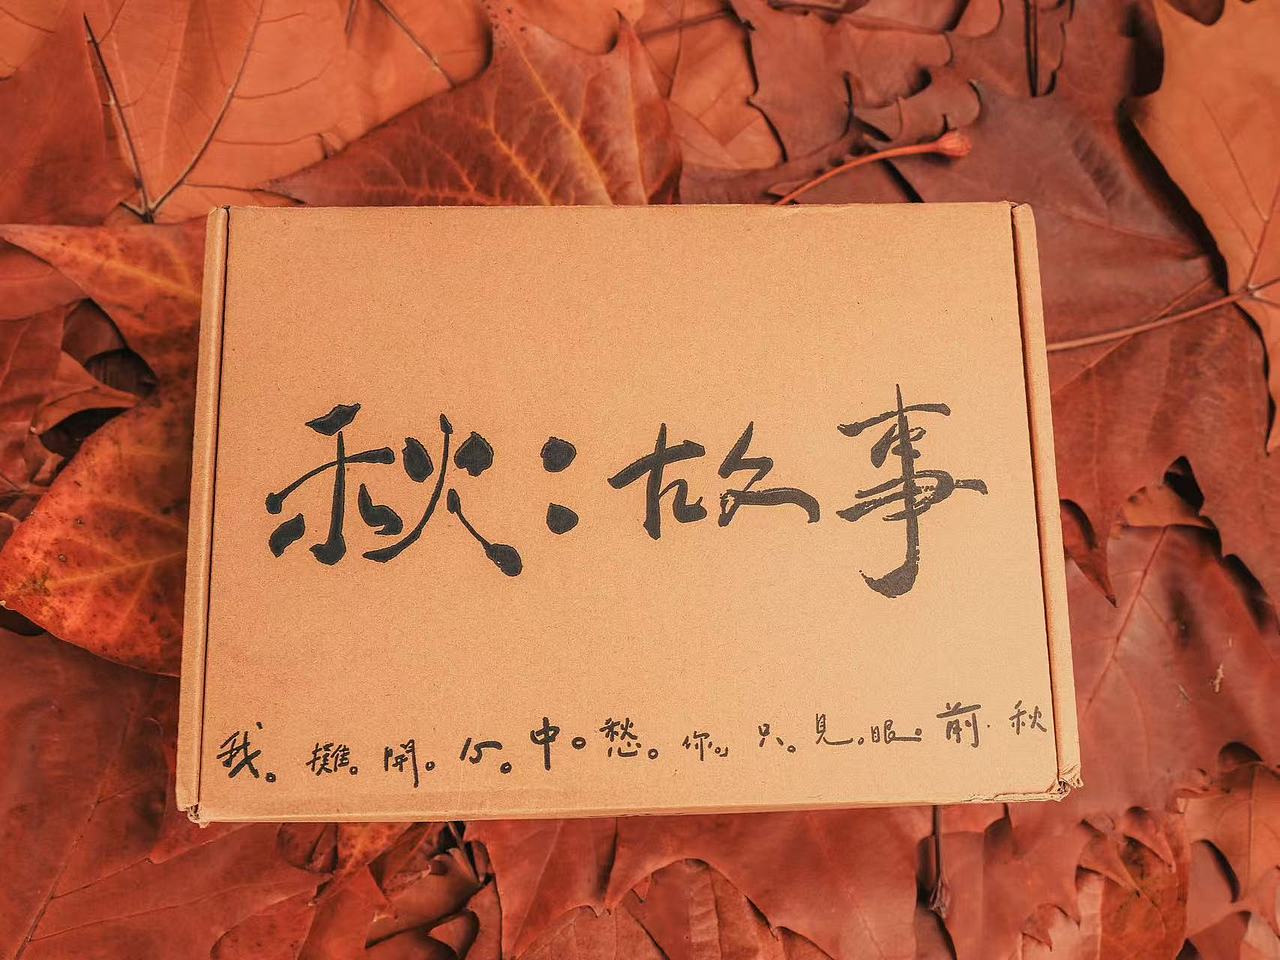 秋:故事
我。攤。開。心。中。愁。你。只。見。眼。前.秋